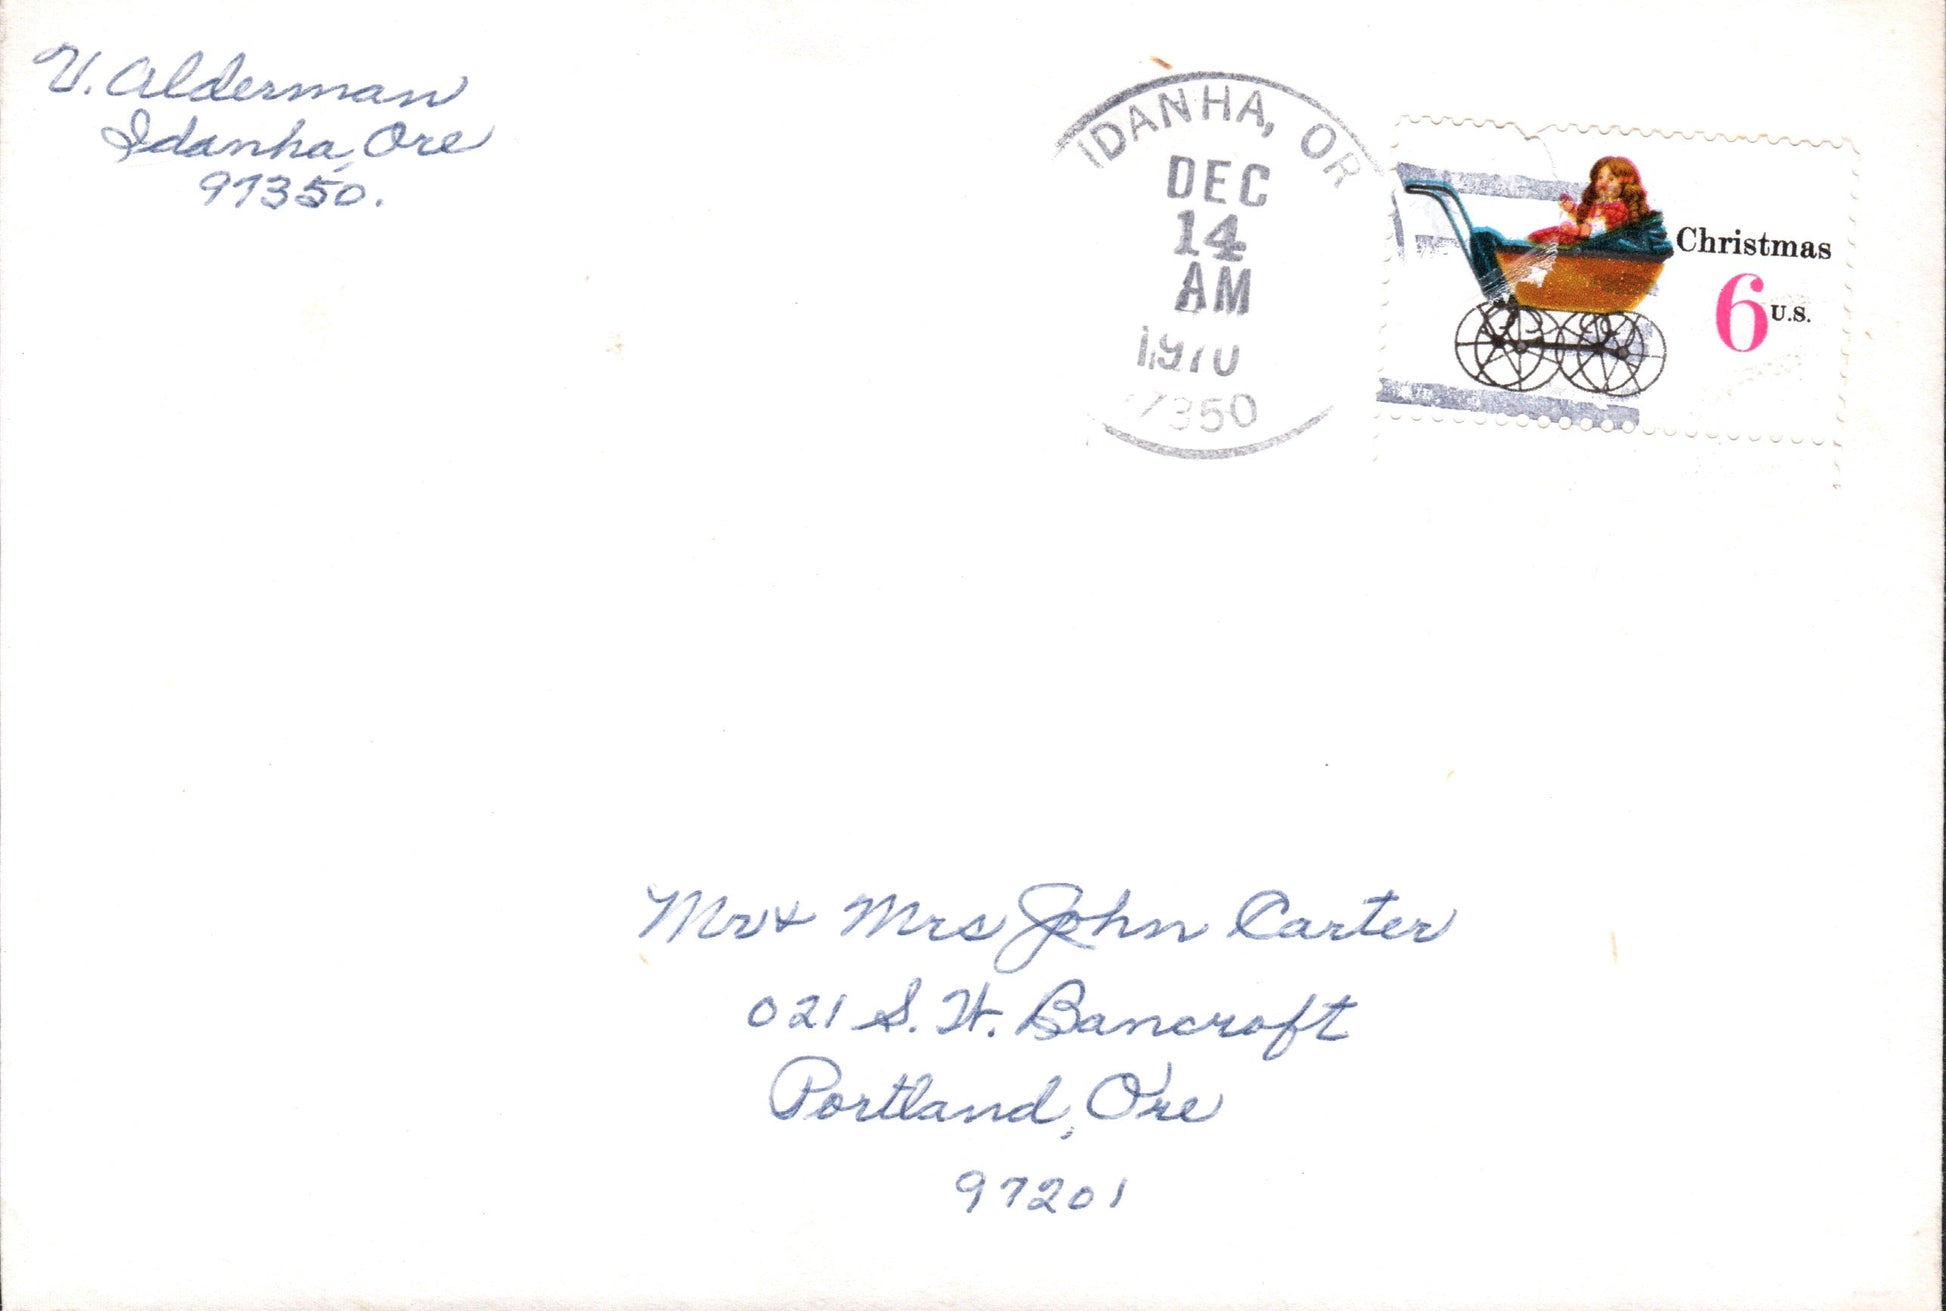 V. Alderman
Idanha, Ore
97350.
IDANHA, OR
DEC
14
AM
1970
7350
Christmas
6 U.S.
Mr & Mrs John Carter
021 S. W. Bancroft
Portland, Ore
97201